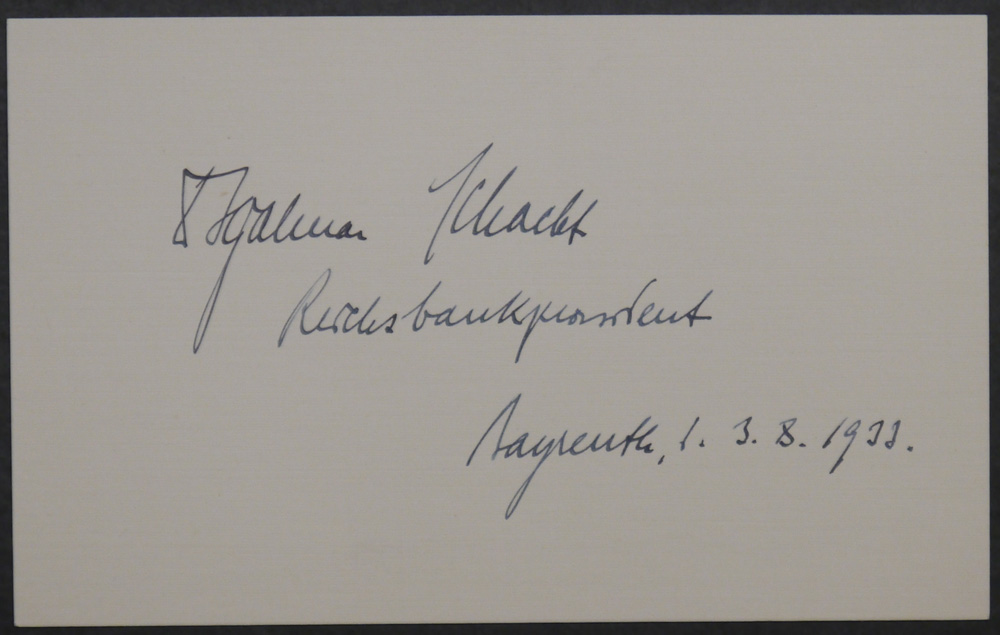 Hjalmar Schacht
Reichsbankpräsident
Bayreuth, d. 3. 8. 1933.